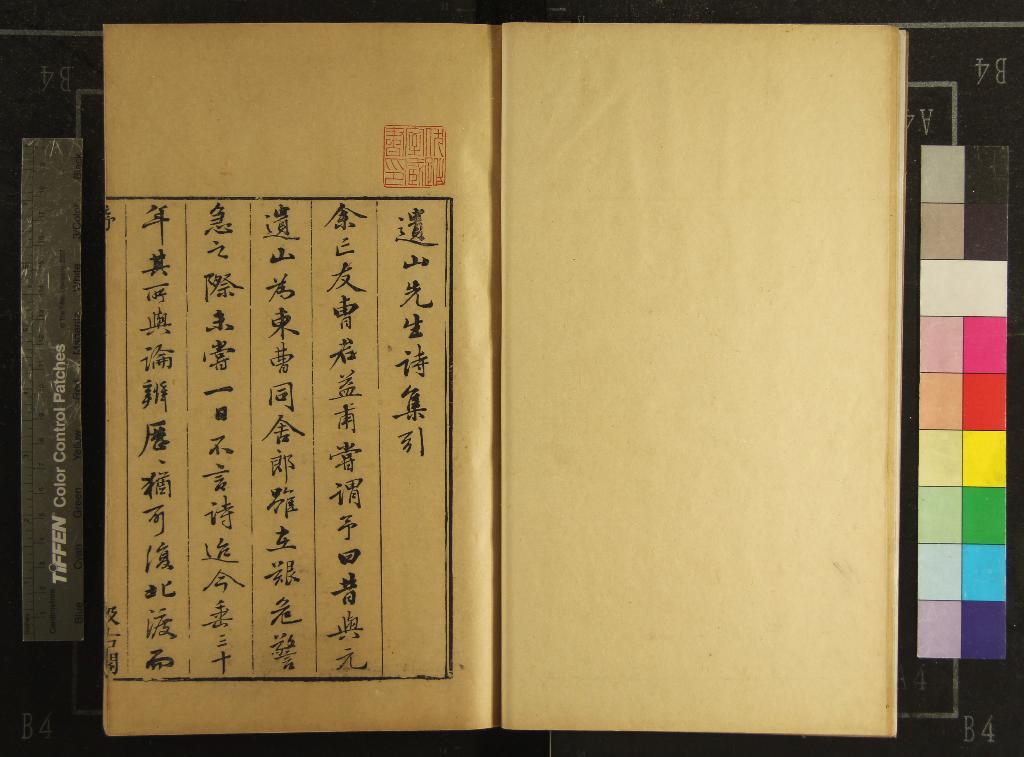 遺山先生詩集引
余亡友曹君益甫嘗謂予曰昔與元
遺山為東曹同舍郎雖在艱危警
急之際未嘗一日不言詩迨今垂三十
年其所與論辨歷〻猶可復北渡而
序
汲古閣
TIFFEN Color Control Patches
Blue
Cyan
Green
Yellow
B4
B4
A4
A4
B4
B4